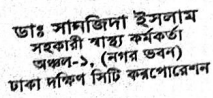 ডাঃ সানজিদা ইসলাম
সহকারী স্বাস্থ্য কর্মকর্তা
অঞ্চল-১, (নগর ভবন)
ঢাকা দক্ষিণ সিটি কর্পোরেশন